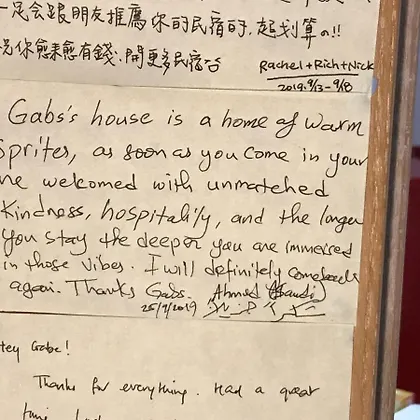 一定会跟朋友推薦你的民宿的,超划算の!!
祝你愈來愈有錢,開更多民宿
Rachel+Rich+Nick
2019.9/13-9/18
Gabs's house is a home of warm
Sprites, as soon as you come in your
welcomed with unmatched
Kindness, hospitality, and the longer
you stay the deeper you are immersed
in those vibes. I will definitely comeback
again. Thanks Gabs. Ahmed
25/9/2019
Hey Gabe!
Thanks for everything. Had a great